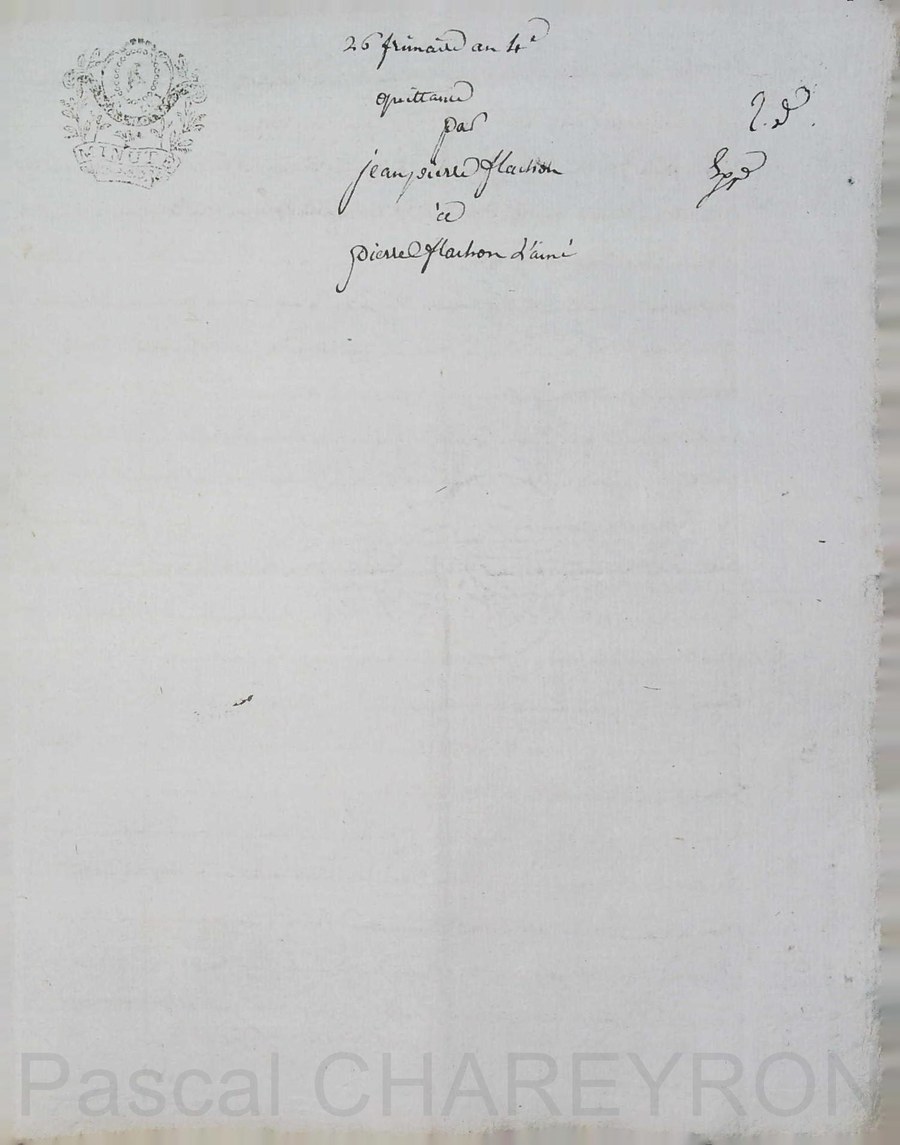 26 frimaire an 4e
quittance
par
jean pierre flachon
a
pierre flachon l'ainé
MINUTE
Pascal CHAREYRON